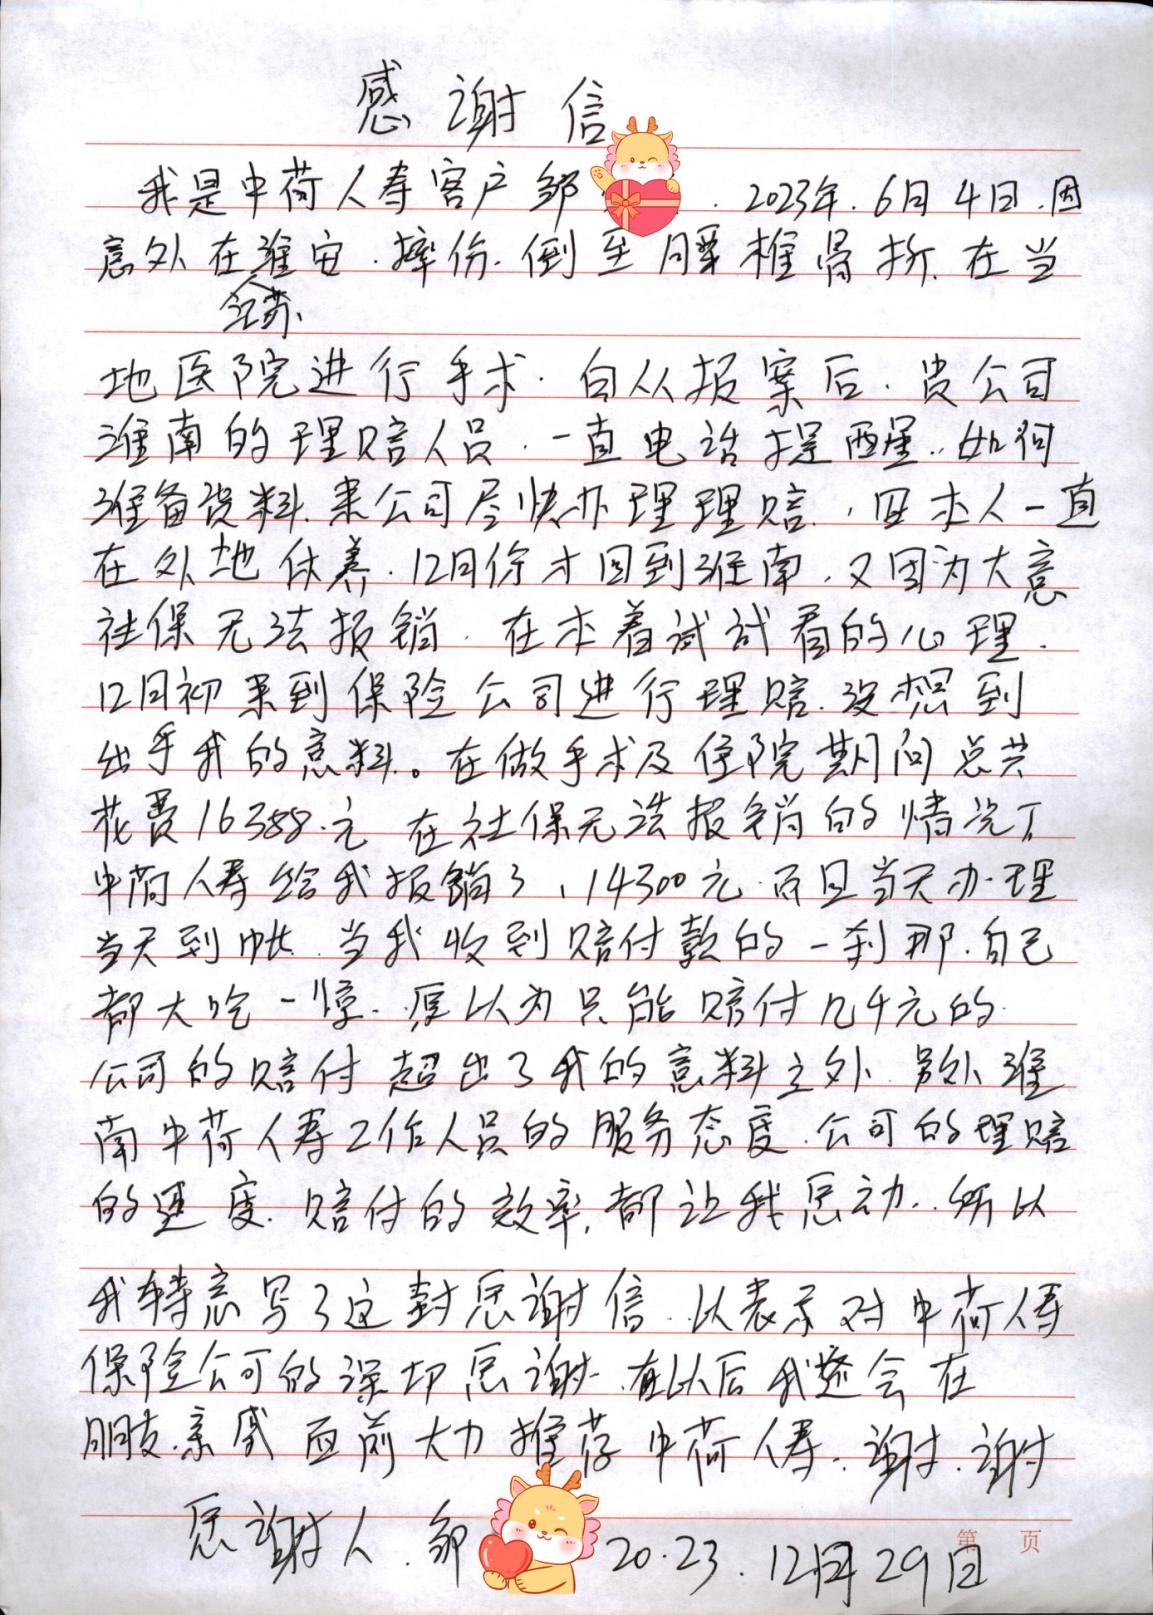 感谢信
我是中荷人寿客户邹 . 2023年.6月4日.因
意外在淮安.摔伤.倒至腰椎骨折.在当
江苏、
地医院进行手术.自从报案后.贵公司
淮南的理赔人员.一直电话提醒..如何
准备资料.来公司尽快办理理赔.,因本人一直
在外地休养.12月份才回到淮南.又因为大意
社保无法报销.在本着试试看的心理.
12月初来到保险公司进行理赔.没想到
出乎我的意料。在做手术及住院期间总共
花费16388.元 在社保无法报销的情况下
中荷人寿给我报销了,14300元.而且当天办理
当天到帐.当我收到赔付款的一刹那.自己
都大吃一惊.原以为只能赔付几千元的
公司的赔付超出了我的意料之外.另外淮
南中荷人寿工作人员的服务态度.公司的理赔
的速度.赔付的效率,都让我感动..所以
我特意写了这封感谢信.以表示对中荷人寿
保险公司的深切感谢.在以后我还会在
朋友.亲戚面前大力推荐中荷人寿.谢谢.谢谢
感谢人.邹 20.23.12月29日
第 页